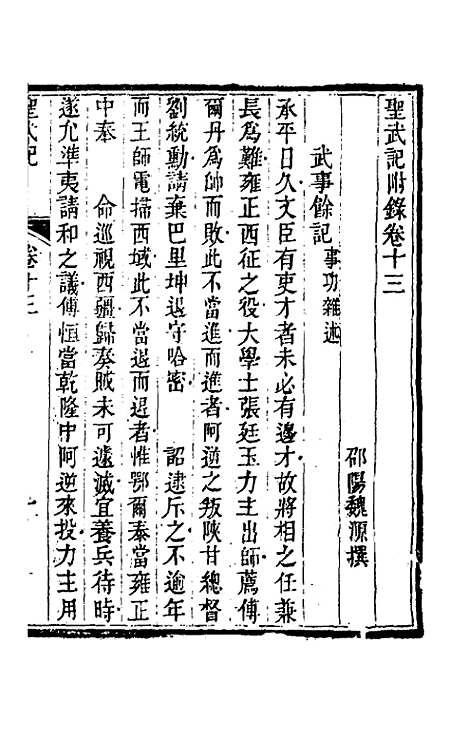 聖武記附錄卷十三
邵陽魏源撰
武事餘記 事功雜述
承平日久文臣有吏才者未必有邊才故將相之任兼
長爲難雍正西征之役大學士張廷玉力主出師薦傅
爾丹爲帥而敗此不當進而進者阿逆之叛陝甘總督
劉統勳請棄巴里坤退守哈密 詔逮斥之不逾年
而王師電掃西域此不當退而退者惟鄂爾泰當雍正
中奉 命巡視西疆歸奏賊未可遽滅宜養兵待時
遂允準夷請和之議傅恒當乾隆中阿逆來投力主用
聖武記
卷十三